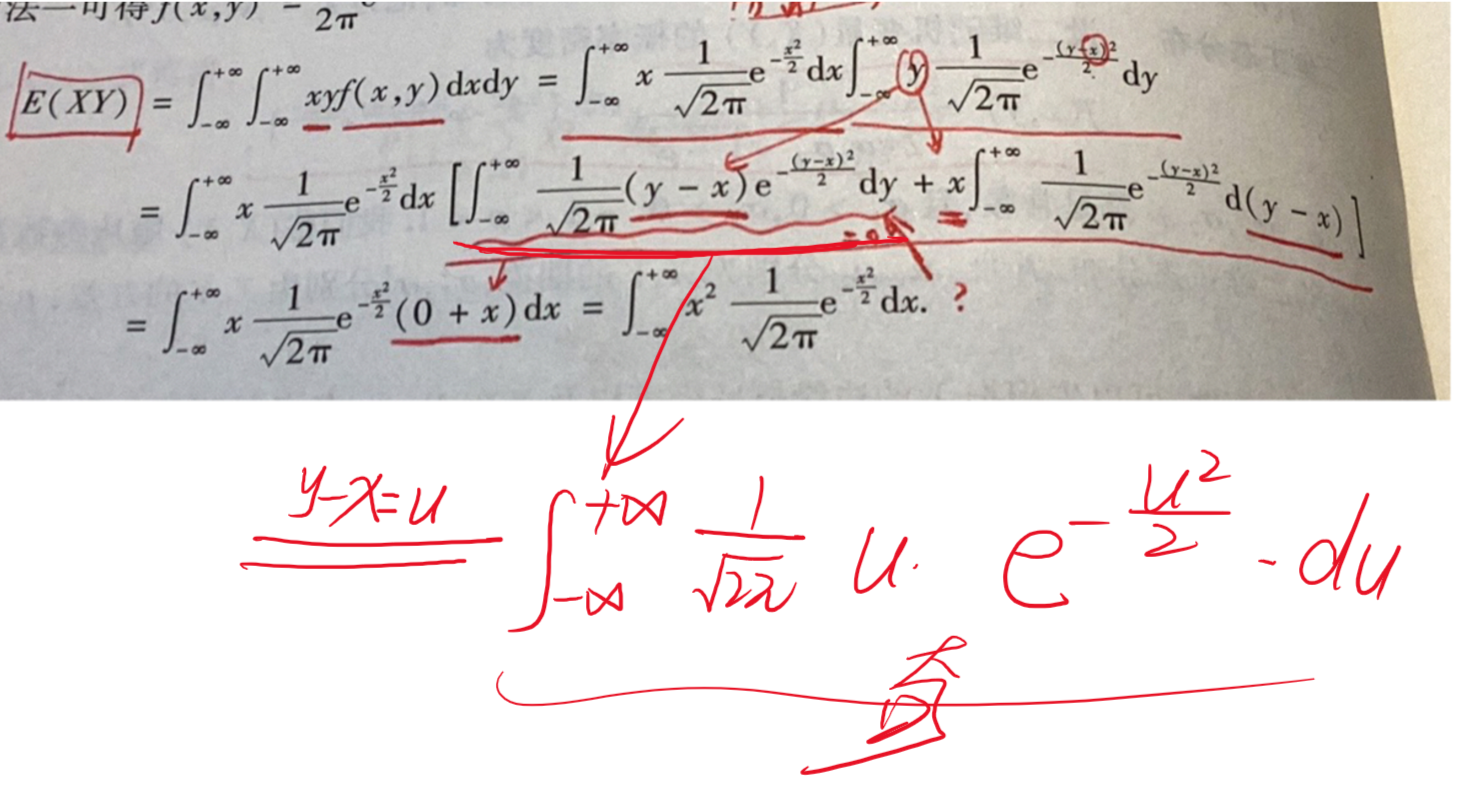 法一可得f(x,y) = 1/2π
E(XY) = ∫_{-∞}^{+∞} ∫_{-∞}^{+∞} xyf(x,y)dxdy = ∫_{-∞}^{+∞} x 1/√2π e^{-x²/2} dx ∫_{-∞}^{+∞} y 1/√2π e^{-(y-x)²/2} dy
= ∫_{-∞}^{+∞} x 1/√2π e^{-x²/2} dx [∫_{-∞}^{+∞} 1/√2π (y - x) e^{-(y-x)²/2} dy + x ∫_{-∞}^{+∞} 1/√2π e^{-(y-x)²/2} d(y - x)]
=0
= ∫_{-∞}^{+∞} x 1/√2π e^{-x²/2} (0 + x) dx = ∫_{-∞}^{+∞} x² 1/√2π e^{-x²/2} dx. ?
y-x=u ∫_{-∞}^{+∞} 1/√2π u · e^{-u²/2} · du
奇